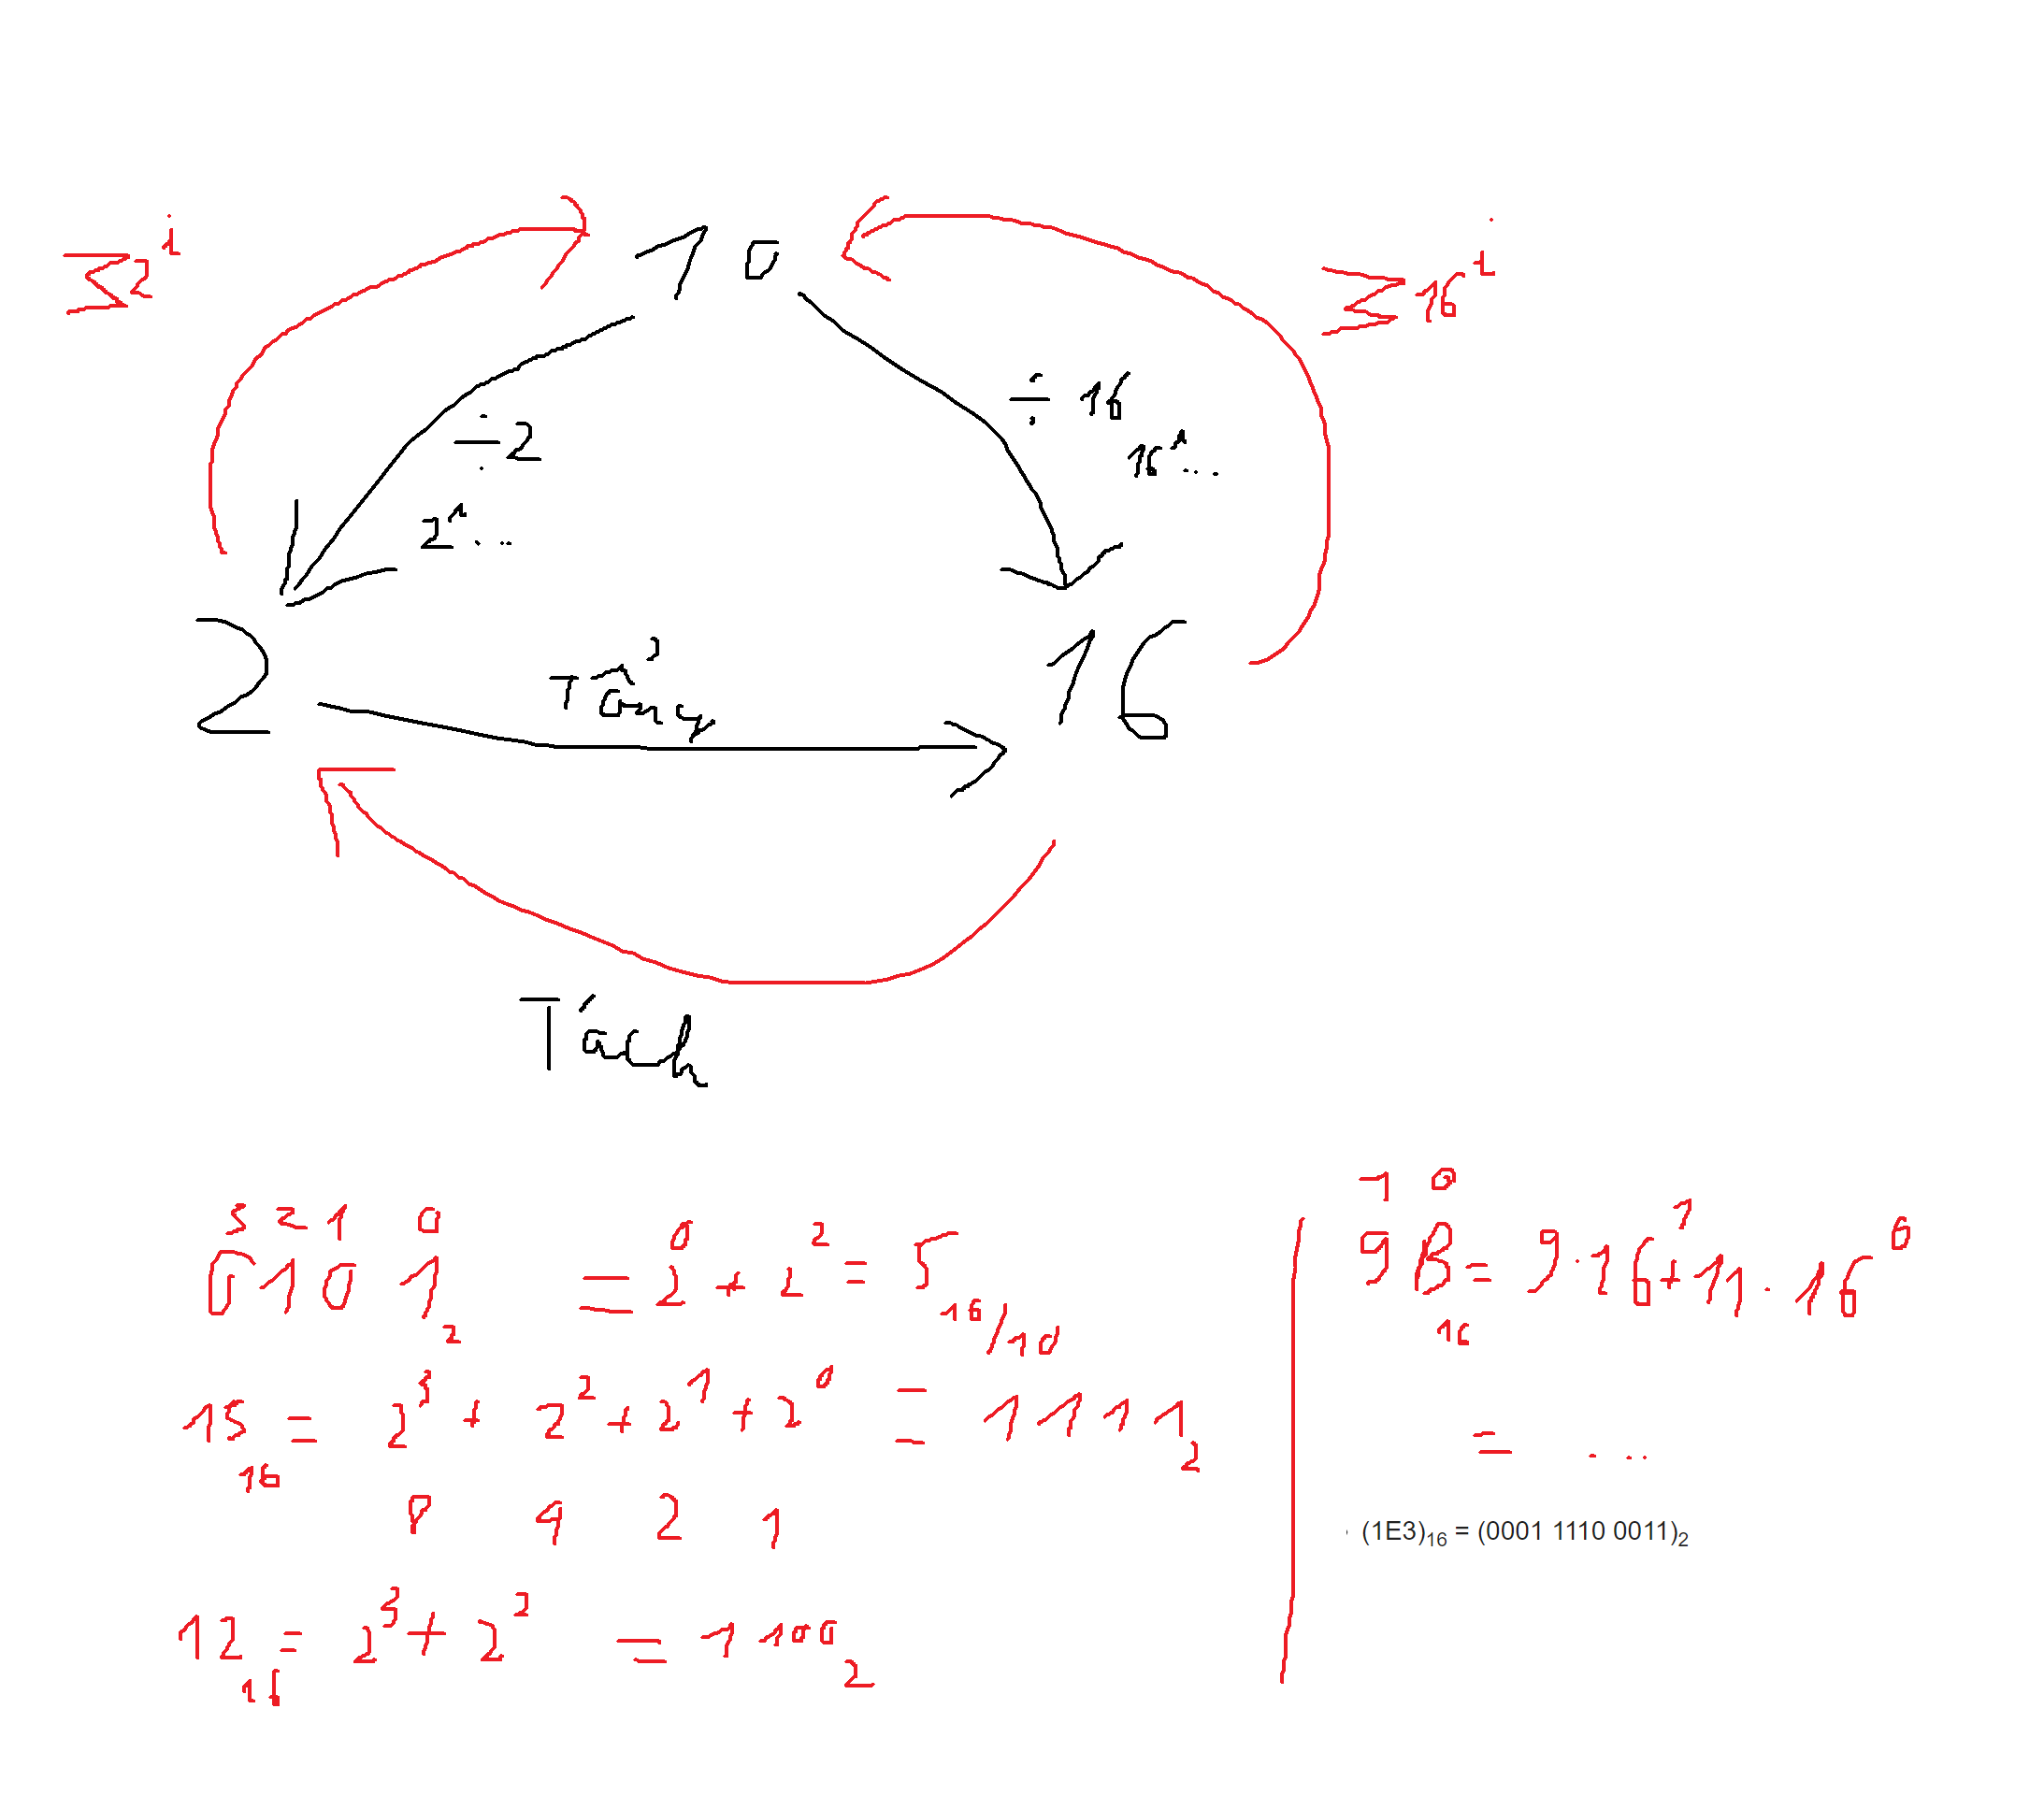 Σ2^i
Σ16^i
10
÷2
2^1...
÷16
16^1...
2
Tổng
16
Tách
3 2 1 0
0101₂ = 2^0 + 2^2 = 5 16/10
15₁₆ = 2^3 + 2^2 + 2^1 + 2^0 = 1111₂
8 4 2 1
12₁₆ = 2^3 + 2^2 = 1100₂
1 0
9B₁₆ = 9.16^1 + 11.16^0
= ...
(1E3)₁₆ = (0001 1110 0011)₂